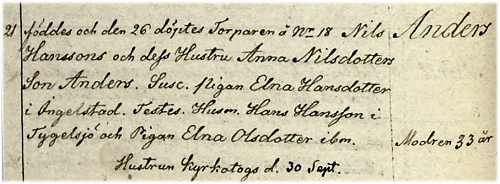 21 föddes och den 26 döptes Torparen å Nr 18 Nils Anders
Hanssons och dess Hustru Anna Nilsdotters
Son Anders. Susc. Pigan Elna Hansdotter
i Angelstad. Testes. Husm. Hans Hansson i
Tygelsjö och Pigan Elna Olsdotter ibm. Modren 33 år
Hustrun kyrkotogs d. 30 Sept.